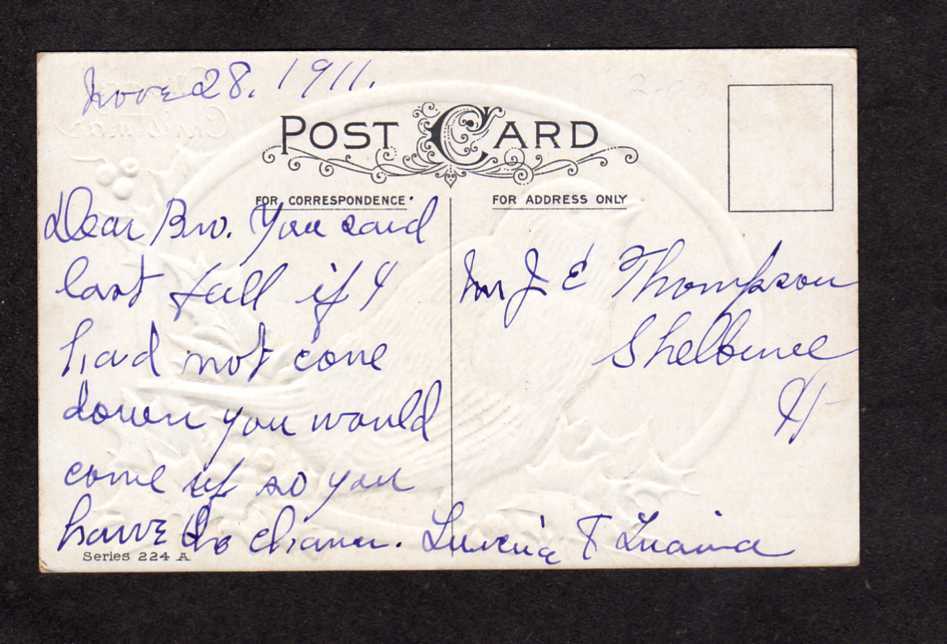 Nove 28. 1911.
POST CARD
FOR CORRESPONDENCE
FOR ADDRESS ONLY
Dear Bro. You said
last fall if I
had not come
down you would
come up so you
have the chance. Lucina T
Mr J E Thompson
Shelburne
Series 224 A